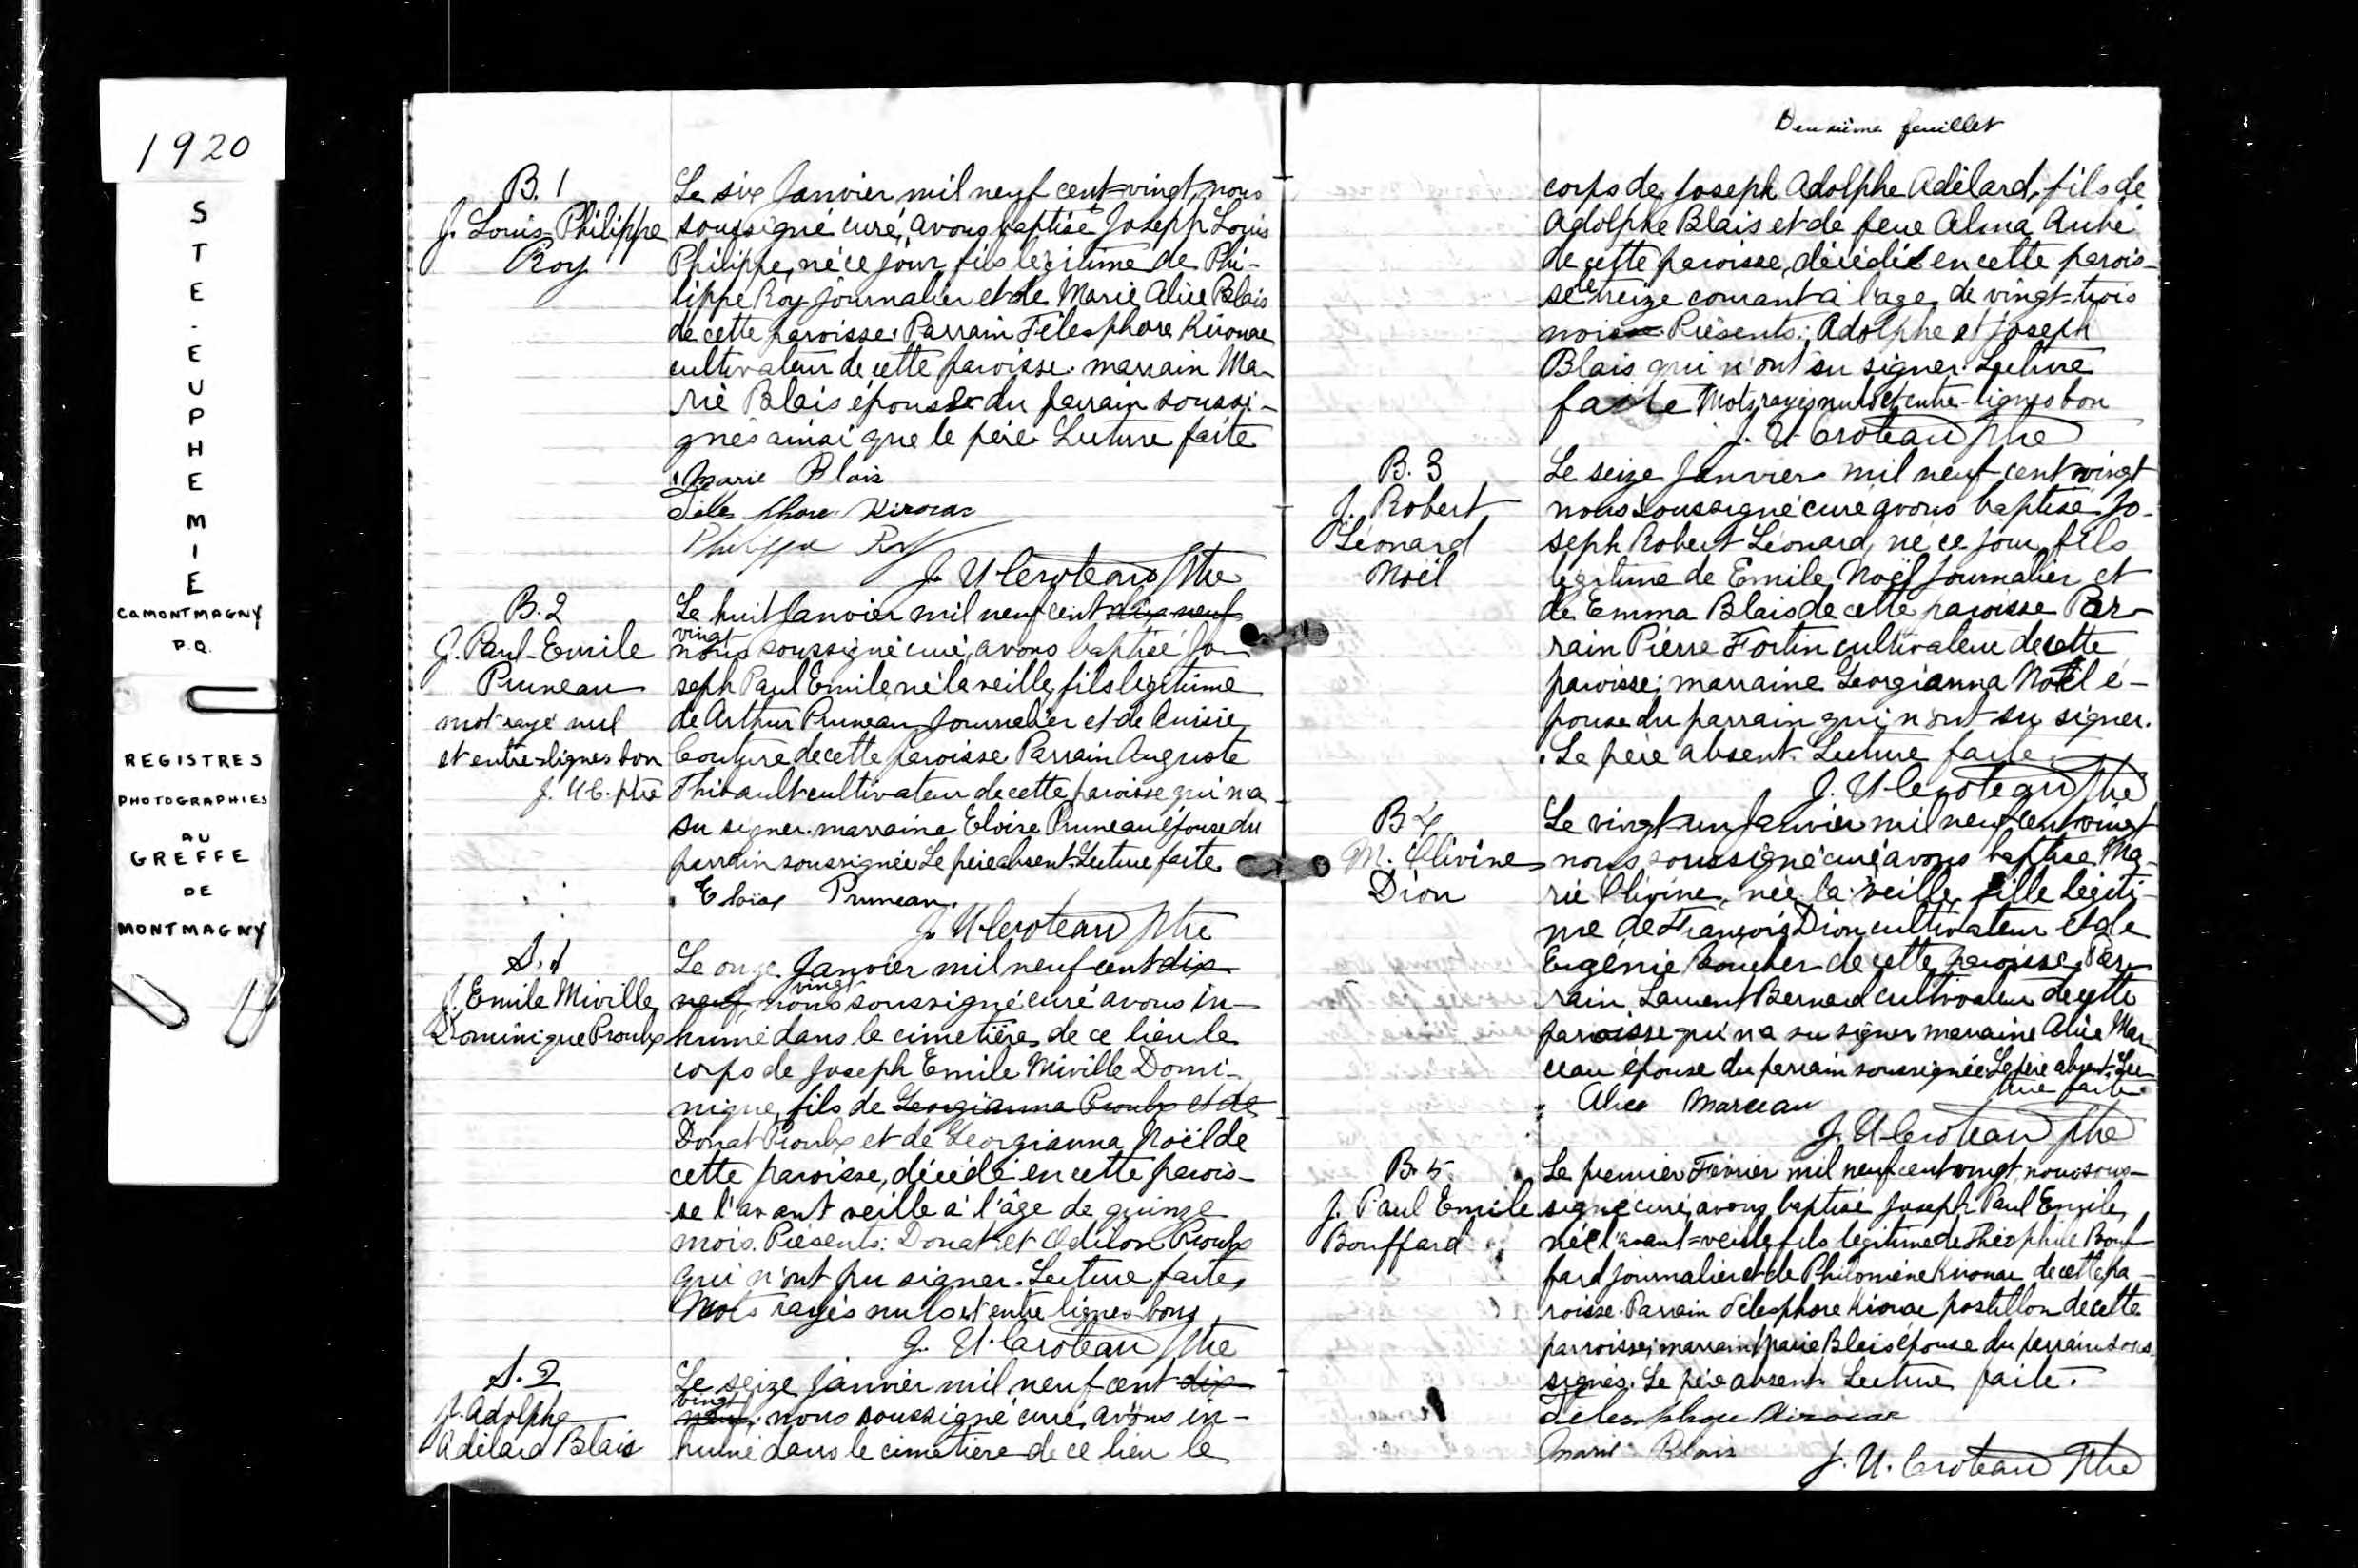 1920
S
T
E
.
E
U
P
H
E
M
I
E
CO MONTMAGNY
P.Q.
REGISTRES
PHOTOGRAPHIES
AU
GREFFE
DE
MONTMAGNY
B. 1
J. Louis Philippe
Roy
Le six Janvier mil neuf cent vingt, nous
soussigné curé, avons baptisé Joseph Louis
Philippe, né ce jour, fils légitime de Phi-
lippe Roy journalier et de Marie Alice Blais
de cette paroisse. Parrain Télesphore Kirouac
cultivateur de cette paroisse. marrain Ma-
rie Blais épouse du parrain soussi-
gnés ainsi que le père. Lecture faite
Marie Blais
Téles phore Kirouac
Philippe Roy
J. U. Croteau Ptre
B. 2
J. Paul-Emile
Pruneau
mot rayé nul
et entre-lignes bon
J. U C. ptre
Le huit Janvier mil neuf cent dix-neuf
vingt
nous soussigné curé, avons baptisé Jo-
seph Paul Emile, né la veille, fils légitime
de Arthur Pruneau Journalier et de
Couture de cette paroisse. Parrain Auguste
Thibault cultivateur de cette paroisse qui n'a
su signer. marraine Eloïse Pruneau épouse du
parrain soussignée. Le père absent. Lecture faite
Eloise Pruneau.
J. U. Croteau Ptre
S. 1
J. Emile Miville
Dominique Proulx
Le onze Janvier mil neuf cent dix
vingt
neuf, nous soussigné curé avons in-
humé dans le cimetière de ce lieu le
corps de Joseph Emile Miville Domi-
nique, fils de Georgianna Proulx et de
Donat Proulx et de Georgianna Noël de
cette paroisse, décédé en cette parois-
se l'avant veille à l'âge de quinze
mois. Présents: Donat et Odilon Proulx
qui n'ont pu signer. Lecture faite,
Mots rayés nuls et entre lignes bons
J. U. Croteau Ptre
S. 2
J. Adolphe
Adélard Blais
Le seize Janvier mil neuf cent dix
vingt
neuf, nous soussigné curé, avons in-
humé dans le cimetière de ce lieu le
Deuxième feuillet
corps de Joseph Adolphe Adélard, fils de
Adolphe Blais et de feue Alma Aubé
de cette paroisse, décédé en cette parois-
se le treize courant à l'age de vingt-trois
mois. Présents: Adolphe et Joseph
Blais qui n'ont su signer. Lecture
faite Mots rayés nuls et entre-lignes bon
J. U. Croteau Ptre
B. 3
J. Robert
Léonard
Noël
Le seize Janvier mil neuf cent vingt
nous soussigné curé avons baptisé Jo-
seph Robert Léonard, né ce jour, fils
légitime de Emile Noël Journalier et
de Emma Blais de cette paroisse Par-
rain Pierre Fortin cultivateur de cette
paroisse; marraine Georgianna Noël é-
pouse du parrain qui n'ont su signer.
Le père absent. Lecture faite.
J. U. Croteau Ptre
B 4
M. Olivine
Dion
Le vingt-un Janvier mil neuf cent vingt
nous soussigné curé avons baptisé Ma-
rie Olivine, née la veille, fille légiti-
me de François Dion cultivateur et de
Eugénie Boucher de cette paroisse. Par-
rain Laurent Bernard cultivateur de cette
paroisse qui n'a su signer marraine Alice Mar-
ceau épouse du parrain soussignée. Le père absent. Lec-
ture faite
Alice Marceau
J. U. Croteau Ptre
B. 5.
J. Paul Emile
Bouffard
Le premier Février mil neuf cent vingt nous sous-
signé curé, avons baptisé Joseph Paul Emile
né l'avant-veille, fils légitime de Théophile Bouf-
fard journalier et de Philomène Kirouac de cette pa-
roisse. Parrain Télesphore Kirouac postillon de cette
parroisse; marraine Marie Blais épouse du parrain sous-
signés. Le père absent. Lecture faite.
Télesphore Kirouac
Marie Blais
J. U. Croteau Ptre